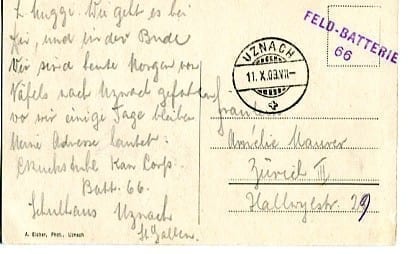 L. Huggi. Wie geht es bei
Dir, und in der Bude
Wir sind heute Morgen von
Näfels nach Uznach gefahren
wo wir einige Tage bleiben
Meine Adresse lautet:
Kan Corp.
Batt. 66.
Schulhaus Uznach
St. Gallen.
A. Eicher, Phot., Uznach
UZNACH
11. X. 09. VII-
FELD-BATTERIE
66
Fräulein
Amélie Maurer
Zürich III
Hallwylstr. 29